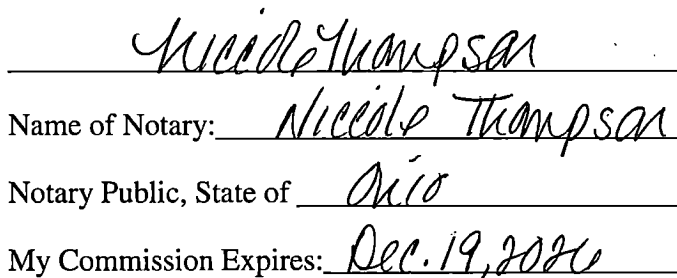 Niccole Thompson
Name of Notary: Niccole Thompson
Notary Public, State of Ohio
My Commission Expires: Dec. 19, 2026